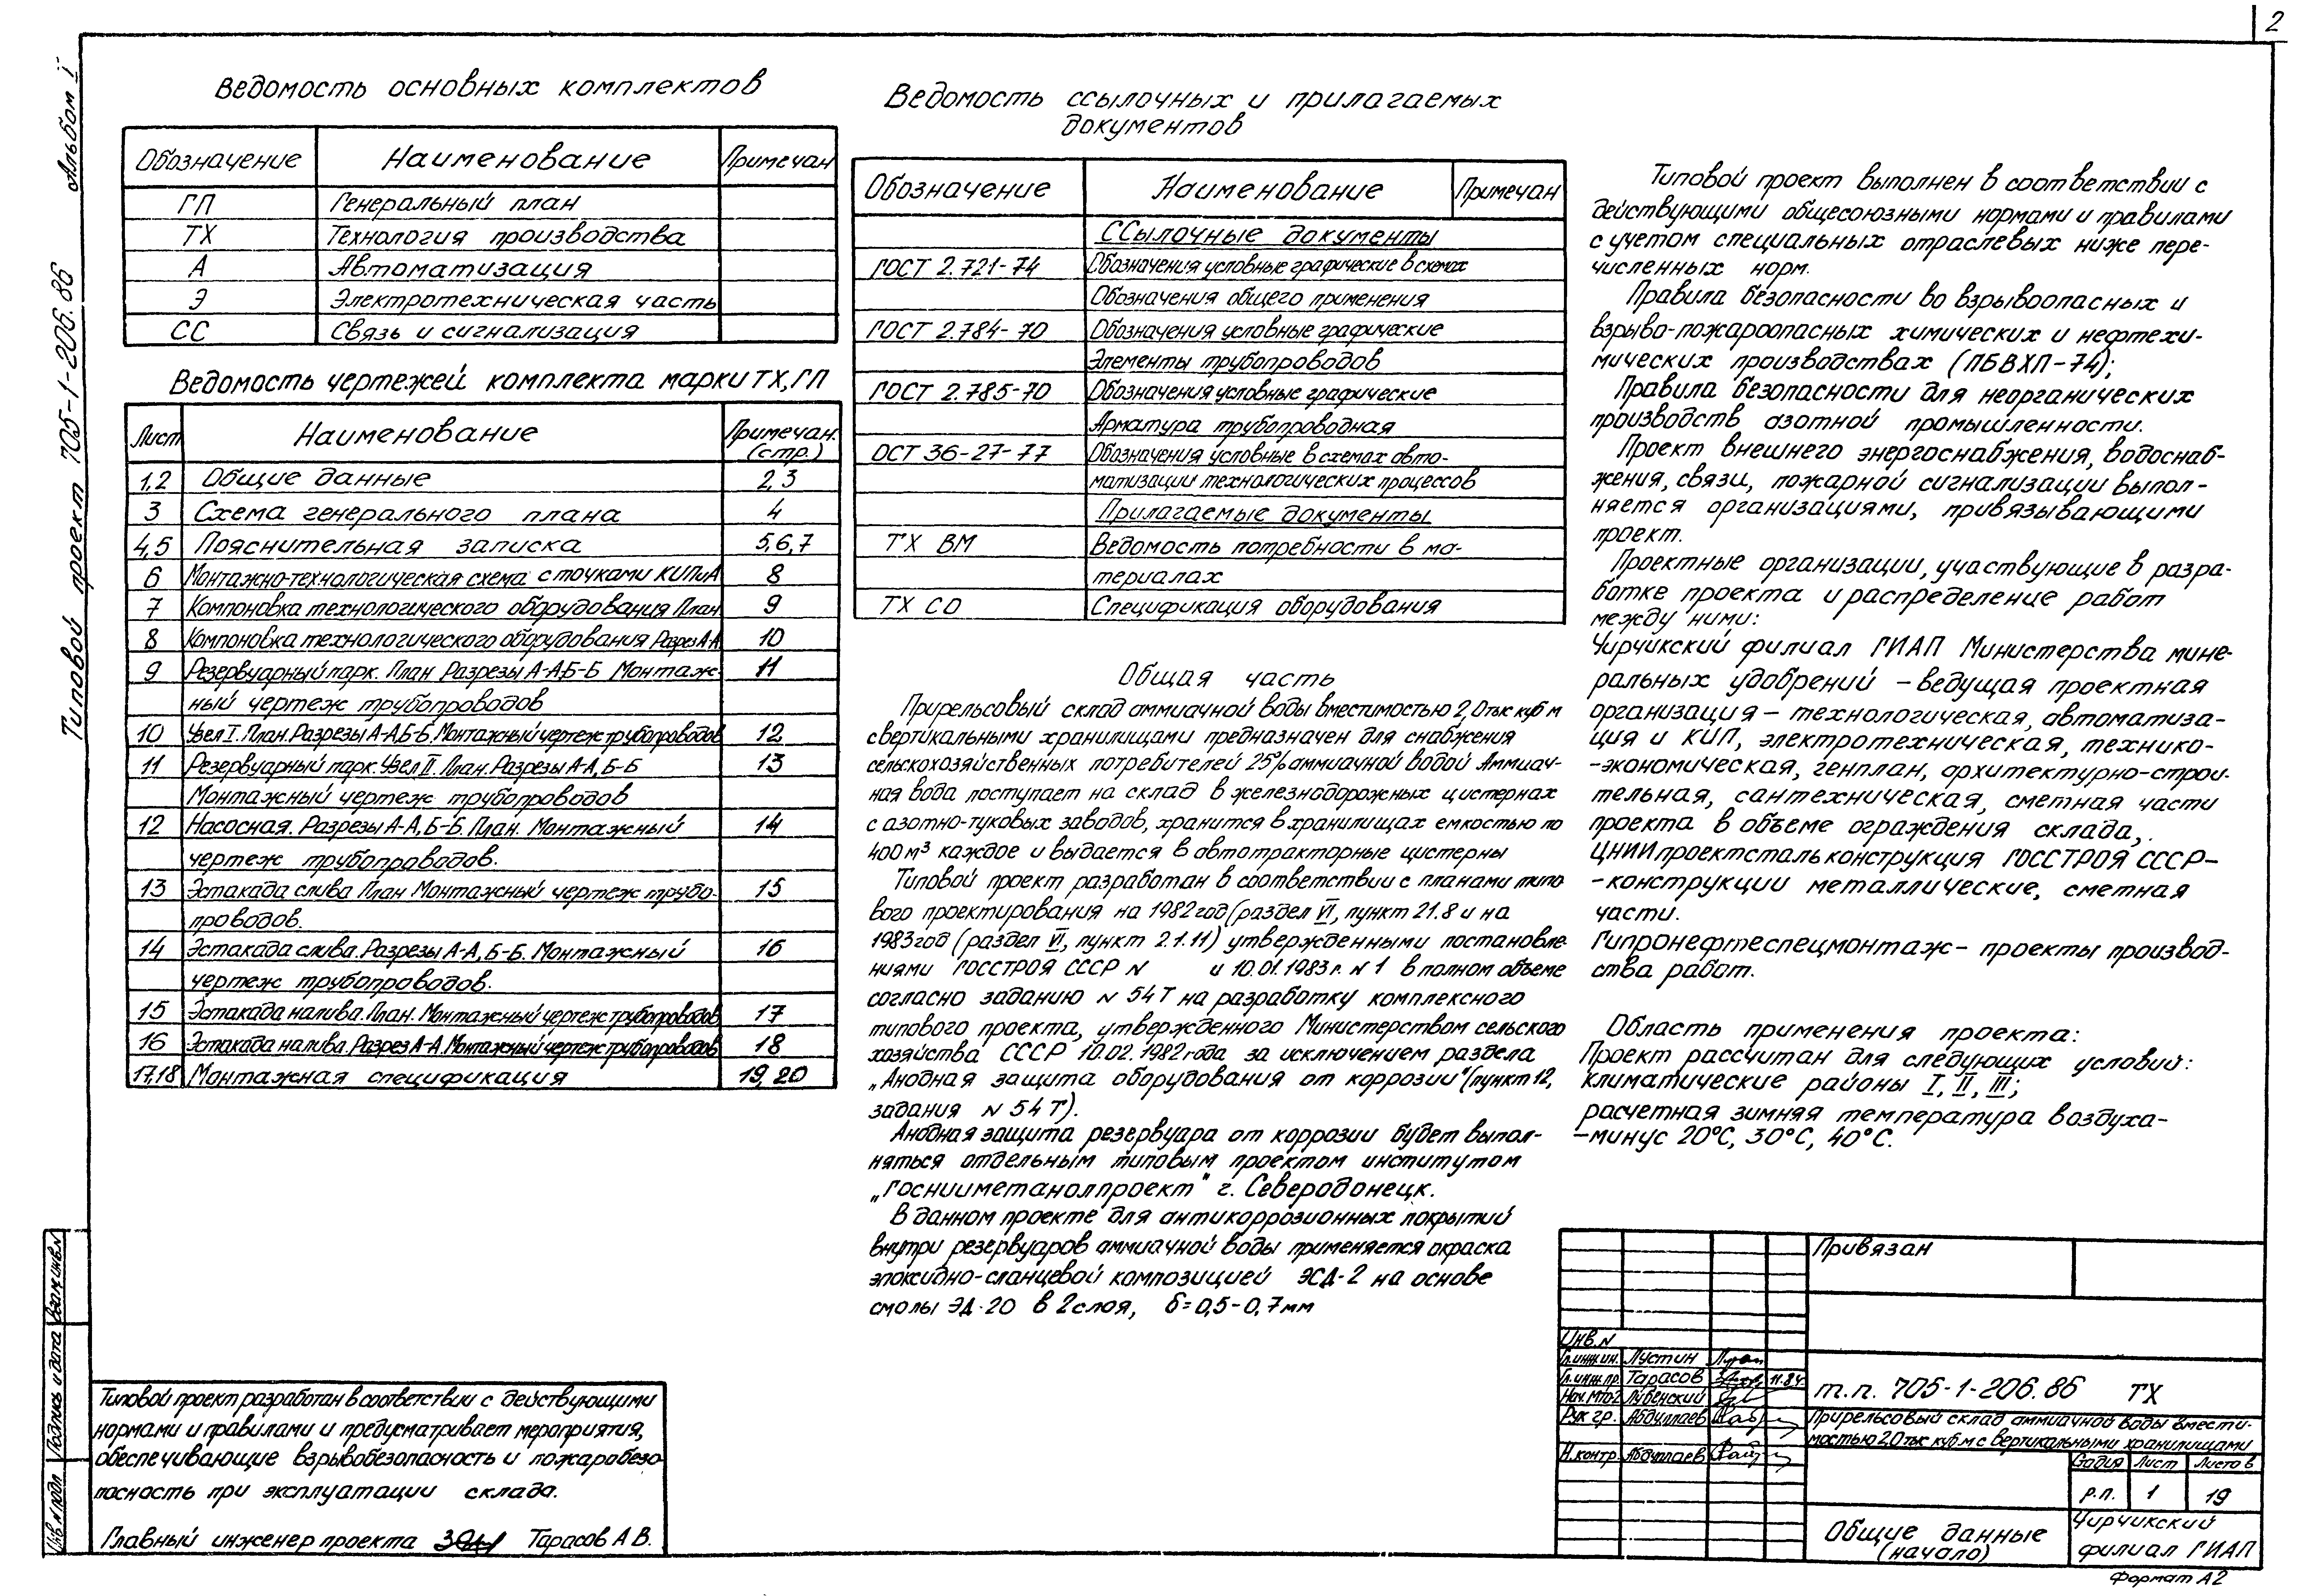 2
Типовой проект 705-1-206.86 Альбом I
Ведомость основных комплектов
Обозначение Наименование Примечан
ГП Генеральный план
ТХ Технология производства
А Автоматизация
Э Электротехническая часть
СС Связь и сигнализация
Ведомость чертежей комплекта марки ТХ, ГП
Лист Наименование Примечан. (стр.)
1,2 Общие данные 2,3
3 Схема генерального плана 4
4,5 Пояснительная записка 5,6,7
6 Монтажно-технологическая схема с точками КИПиА 8
7 Компоновка технологического оборудования План 9
8 Компоновка технологического оборудования Разрез А-А 10
9 Резервуарный парк. План Разрезы А-А,Б-Б Монтаж- 11
ный чертеж трубопроводов
10 Узел I. План. Разрезы А-А,Б-Б. Монтажный чертеж трубопроводов 12
11 Резервуарный парк. Узел II. План. Разрезы А-А, Б-Б 13
Монтажный чертеж трубопроводов
12 Насосная. Разрезы А-А, Б-Б. План. Монтажный 14
чертеж трубопроводов.
13 Эстакада слива План Монтажный чертеж трубо- 15
проводов.
14 Эстакада слива. Разрезы А-А, Б-Б. Монтажный 16
чертеж трубопроводов.
15 Эстакада налива. План. Монтажный чертеж трубопроводов 17
16 Эстакада налива. Разрез А-А. Монтажный чертеж трубопроводов 18
17,18 Монтажная спецификация 19,20
Ведомость ссылочных и прилагаемых
документов
Обозначение Наименование Примечан
Ссылочные документы
ГОСТ 2.721-74 Обозначения условные графические в схемах
Обозначения общего применения
ГОСТ 2.784-70 Обозначения условные графические
Элементы трубопроводов
ГОСТ 2.785-70 Обозначения условные графические
Арматура трубопроводная
ОСТ 36-27-77 Обозначения условные в схемах авто-
матизации технологических процессов
Прилагаемые документы
ТХ ВМ Ведомость потребности в ма-
териалах
ТХ СО Спецификация оборудования
Общая часть
Прирельсовый склад аммиачной воды вместимостью 2,0 тыс куб м
с вертикальными хранилищами предназначен для снабжения
сельскохозяйственных потребителей 25% аммиачной водой Аммиач-
ная вода поступает на склад в железнодорожных цистернах
с азотно-туковых заводов, хранится в хранилищах емкостью по
400 м³ каждое и выдается в автотракторные цистерны
Типовой проект разработан в соответствии с планами типо
вого проектирования на 1982 год (раздел VI, пункт 21.8 и на
1983 год (раздел VI, пункт 2.1.11) утвержденными постановле-
ниями ГОССТРОЯ СССР N и 10.01.1983 г. N 1 в полном объеме
согласно заданию N 54 Т на разработку комплексного
типового проекта, утвержденного Министерством сельского
хозяйства СССР 10.02.1982 года за исключением раздела
„Анодная защита оборудования от коррозии" (пункт 12,
задания N 54 Т).
Анодная защита резервуара от коррозии будет выпол-
няться отдельным типовым проектом институтом
„Госнииметанолпроект" г. Северодонецк.
В данном проекте для антикоррозионных покрытий
внутри резервуаров аммиачной воды применяется окраска
эпоксидно-сланцевой композицией ЭСД-2 на основе
смолы ЭД-20 в 2 слоя, δ=0,5-0,7мм
Типовой проект выполнен в соответствии с
действующими общесоюзными нормами и правилами
с учетом специальных отраслевых ниже пере-
численных норм.
Правила безопасности во взрывоопасных и
взрыво-пожароопасных химических и нефтехи-
мических производствах (ПБВХП-74);
Правила безопасности для неорганических
производств азотной промышленности.
Проект внешнего энергоснабжения, водоснаб-
жения, связи, пожарной сигнализации выпол-
няется организациями, привязывающими
проект.
Проектные организации, участвующие в разра-
ботке проекта и распределение работ
между ними:
Чирчикский филиал ГИАП Министерства мине-
ральных удобрений - ведущая проектная
организация - технологическая, автоматиза-
ция и КИП, электротехническая, технико-
-экономическая, генплан, архитектурно-строи-
тельная, сантехническая, сметная части
проекта в объеме ограждения склада,.
ЦНИИпроектстальконструкция ГОССТРОЯ СССР-
-конструкции металлические, сметная
части.
Гипронефтеспецмонтаж - проекты производ-
ства работ.
Область применения проекта:
Проект рассчитан для следующих условий:
климатические районы I, II, III;
расчетная зимняя температура воздуха-
-минус 20°С, 30°С, 40°С.
Типовой проект разработан в соответствии с действующими
нормами и правилами и предусматривает мероприятия,
обеспечивающие взрывобезопасность и пожаробезо
пасность при эксплуатации склада.
Главный инженер проекта Тарасов А В.
Инв N подл Подпись и дата Взам инв N
Привязан
Инв. N
Гл. инж ин. Лустин
Гл. инж пр. Тарасов 11.84
Нач. МТО-2 Лубенский
Рук гр. Абдуллаев
Н. контр. Абдуллаев
т.п. 705-1-206.86 ТХ
Прирельсовый склад аммиачной воды вмести-
мостью 2,0 тыс куб.м с вертикальными хранилищами
Стадия Лист Листов
р.п. 1 19
Общие данные
(начало)
Чирчикский
филиал ГИАП
Формат А2